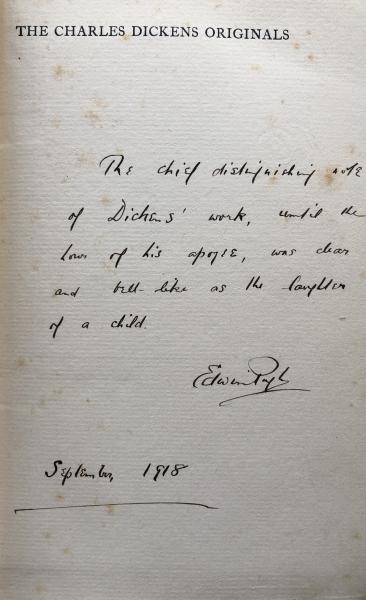 THE CHARLES DICKENS ORIGINALS
The chief distinguishing note
of Dickens' work, until the
hour of his apogee, was clear
and bell-like as the laughter
of a child.
Edwin Pugh
September, 1918